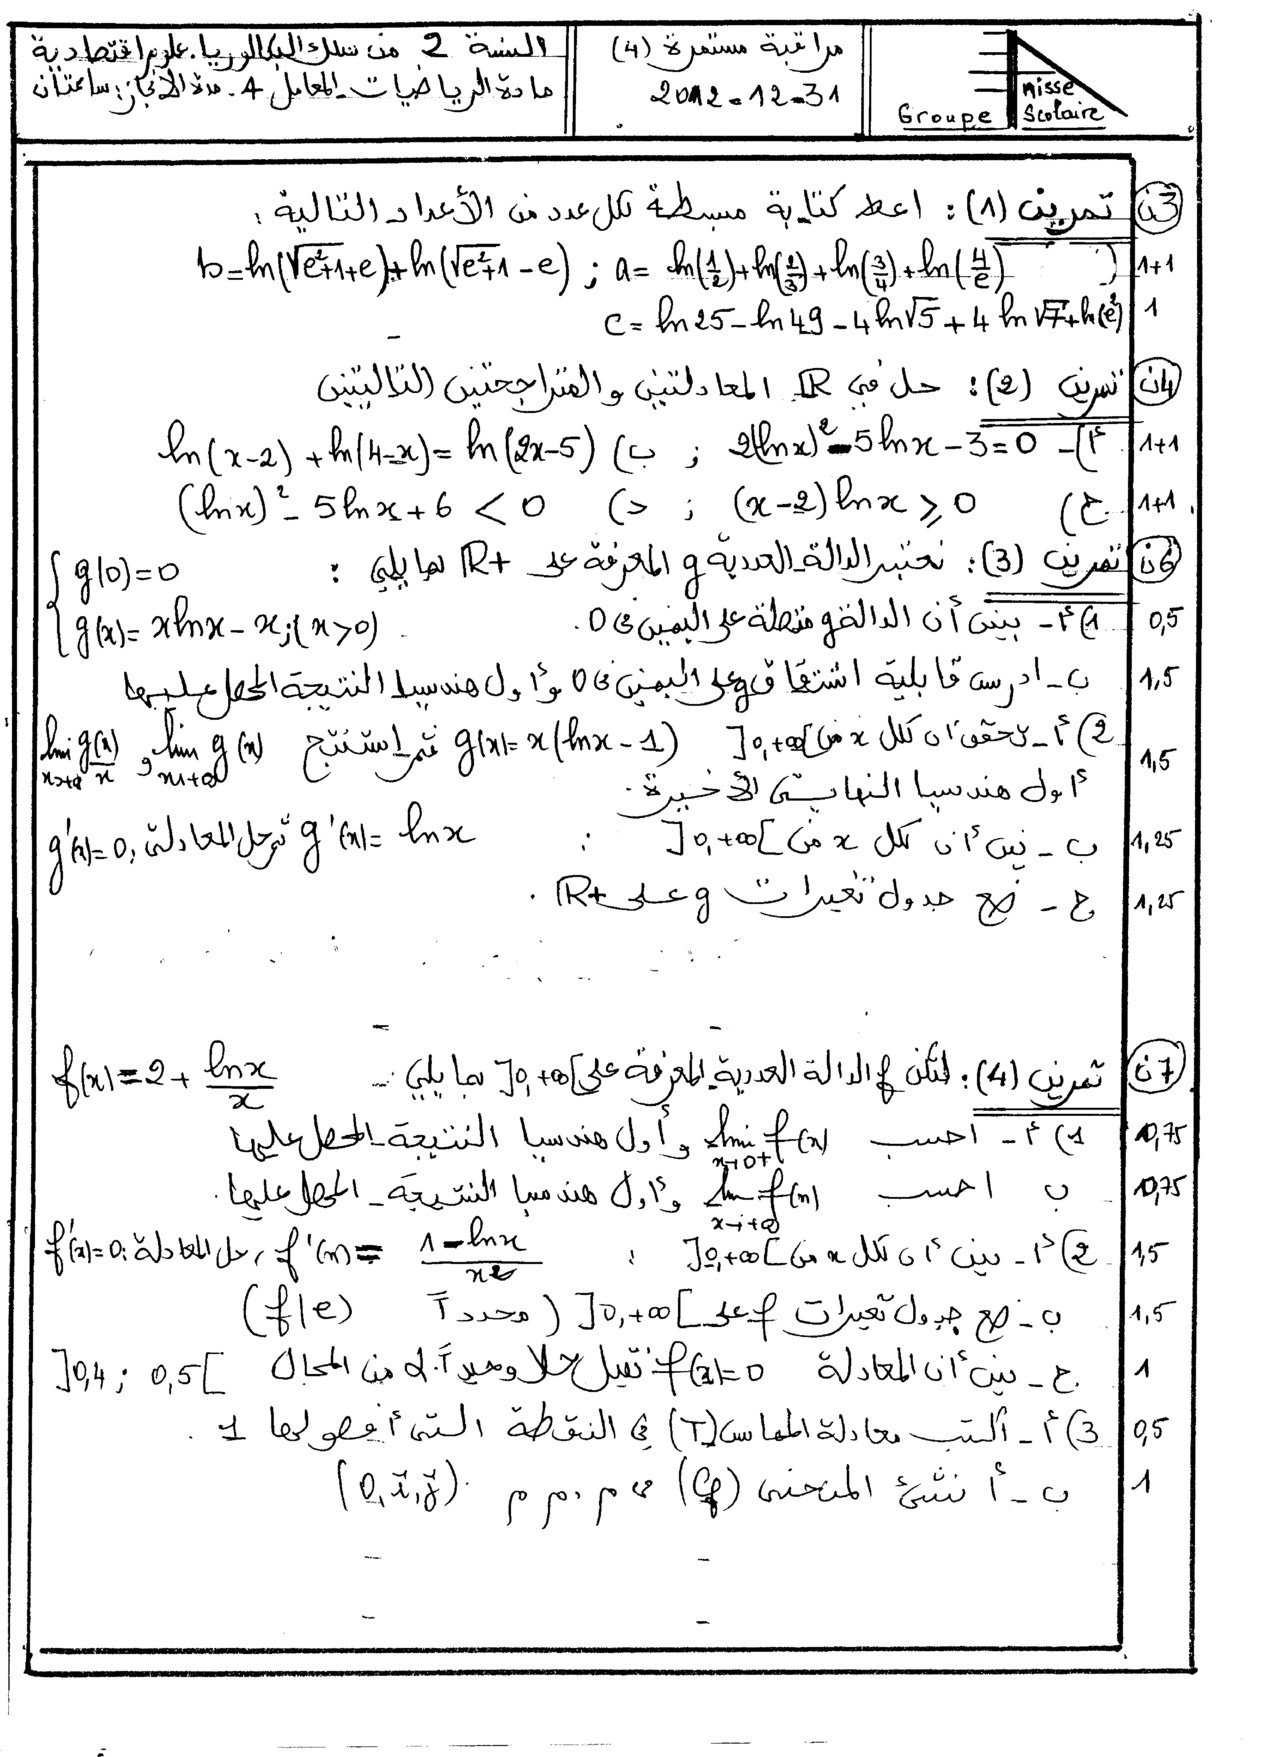 السنة 2 من سلك البكالوريا. علوم اقتصادية
مادة الرياضيات - المعامل 4. مدة الانجاز: ساعتان
مراقبة مستمرة (4)
2012-12-31
Groupe nisse Scolaire
3ن تمرين (1): اعط كتابة مبسطة لكل عدد من الأعداد التالية:
1+1 a = ln(1/2)+ln(2/3)+ln(3/4)+ln(4/e) ; b = ln(√(e²+1)+e)+ln(√(e²+1)-e)
1 c = ln25 - ln49 - 4ln√5 + 4ln√7 + ln(e²)
4ن تمرين (2): حل في IR المعادلتين والمتراجحتين التاليتين
1+1 أ)- 2(lnx)² - 5lnx - 3 = 0 ; ب) ln(x-2) + ln(4-x) = ln(2x-5)
1+1 ج) (x-2)lnx ≥ 0 ; د) (lnx)² - 5lnx + 6 < 0
6ن تمرين (3): نعتبر الدالة العددية g المعرفة على IR+ بما يلي: { g(0)=0
g(x) = xlnx - x ; (x>0)
0,5 1) أ- بين أن الدالة g متصلة على اليمين في 0.
1,5 ب- ادرس قابلية اشتقاق g على اليمين في 0 وأول هندسيا النتيجة المحصل عليها
1,5 2) أ- تحقق أن لكل x من ]0,+∞[ g(x) = x(lnx - 1) ثم استنتج lim g(x) x→+∞ و lim g(x)/x x→+∞
أول هندسيا النهايتين الأخيرة.
1,25 ب- بين أن لكل x من ]0,+∞[ : g'(x) = lnx ثم حل المعادلة: g'(x)=0
1,25 ج- ضع جدول تغيرات g على IR+.
7ن تمرين (4): لتكن f الدالة العددية المعرفة على ]0,+∞[ بما يلي: f(x) = 2 + lnx/x
0,75 1) أ- احسب lim f(x) x→0+ وأول هندسيا النتيجة المحصل عليها
0,75 ب احسب lim f(x) x→+∞ وأول هندسيا النتيجة المحصل عليها.
1,5 2) أ- بين أن لكل x من ]0,+∞[ : f'(x) = (1-lnx)/x² ، حل المعادلة: f'(x)=0
1,5 ب- ضع جدول تغيرات f على ]0,+∞[ (محدداً f(e))
1 ج- بين أن المعادلة f(x)=0 تقبل حلا وحيداً α من المجال ]0,4 ; 0,5[
0,5 3) أ- أكتب معادلة المماس (T) في النقطة التي أفصولها 1.
1 ب- أنشئ المنحنى (Cf) في م.م.م (0,i,j).